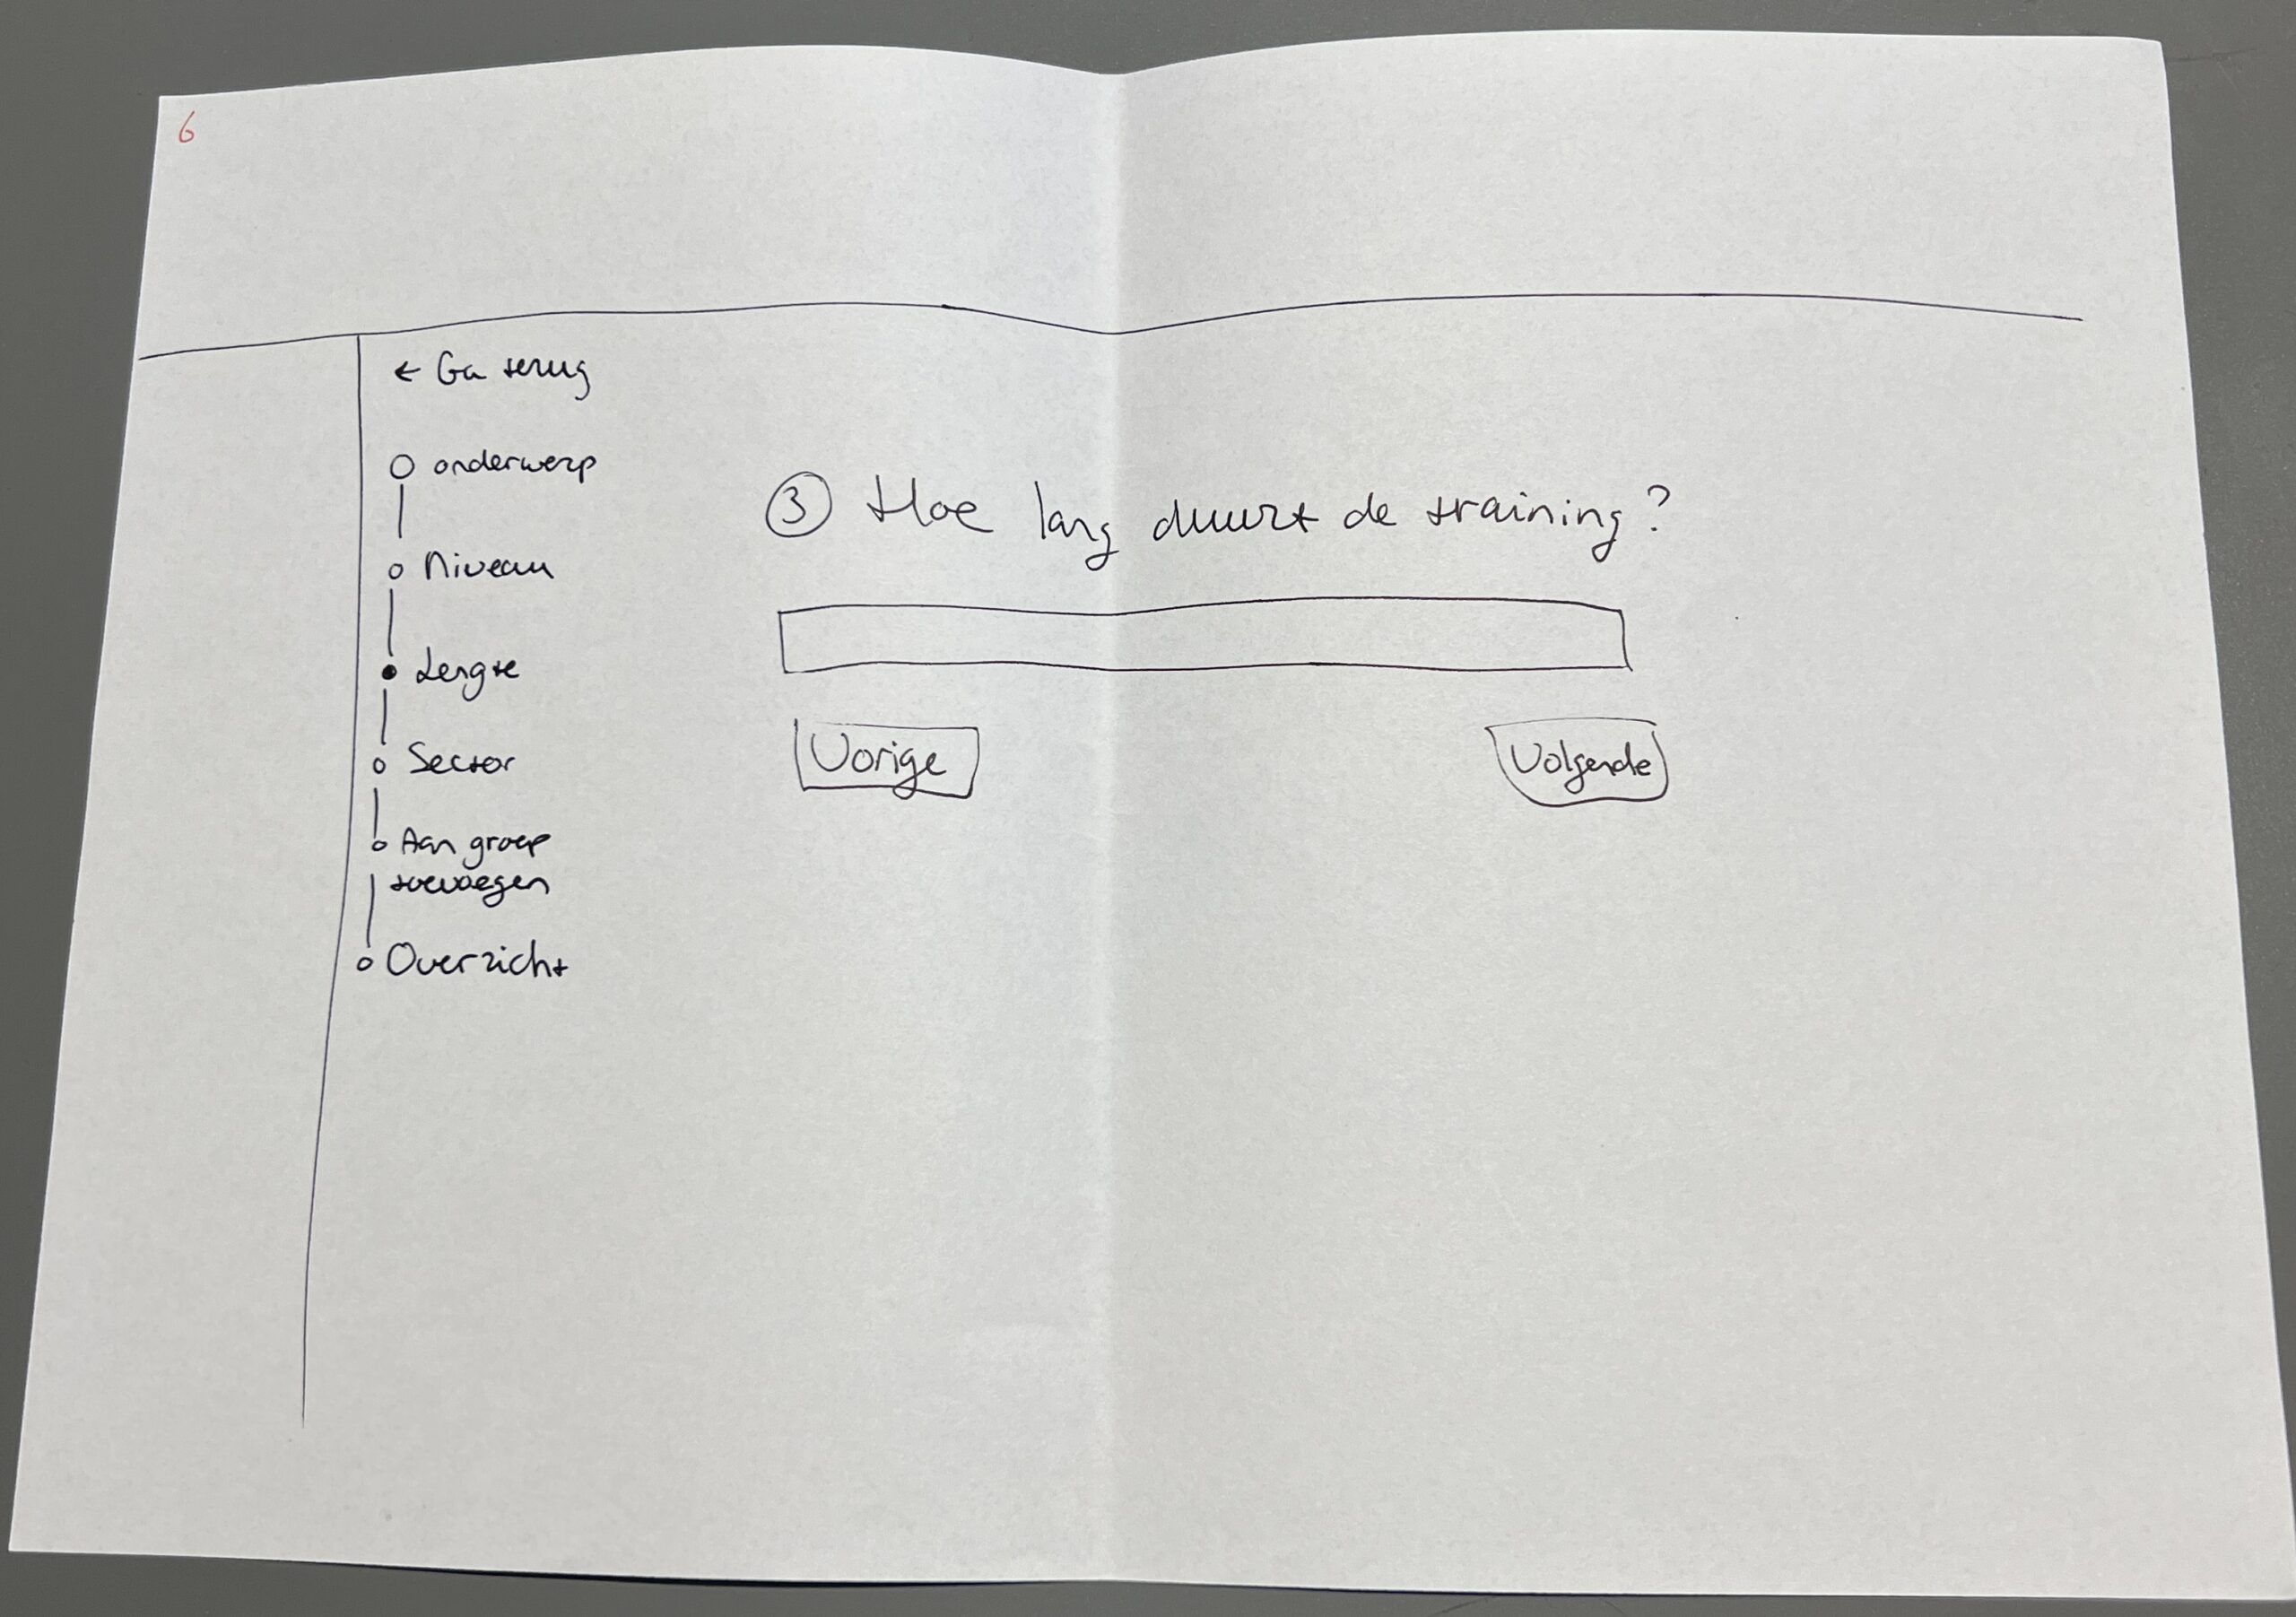 6
← Ga terug
onderwerp
Niveau
Lengte
Sector
Aan groep
toevoegen
Overzicht
③ Hoe lang duurt de training?
Vorige
Volgende